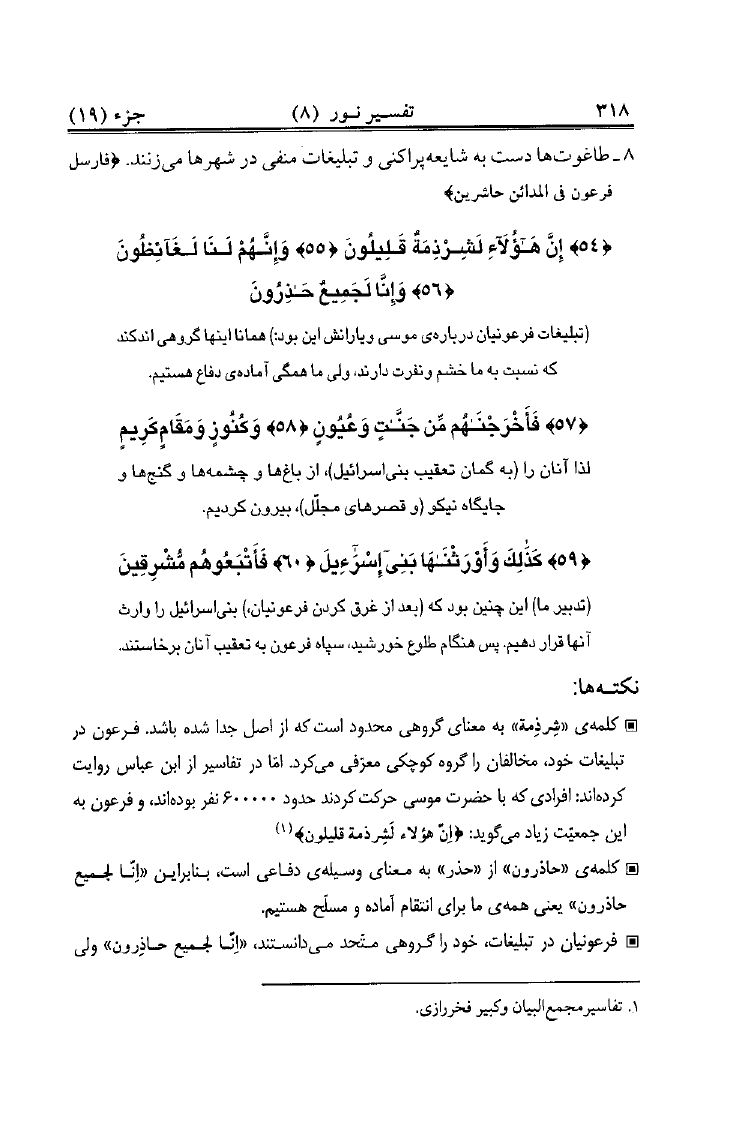 ۳۱۸ تفسیر نور (۸) جزء (۱۹)
۸ـ طاغوت‌ها دست به شایعه‌پراکنی و تبلیغات منفی در شهرها می‌زنند. ﴿فارسل
فرعون فی المدائن حاشرین﴾
﴿٥٤﴾ إِنَّ هَـٰٓؤُلَآءِ لَشِرْذِمَةٌ قَلِيلُونَ ﴿٥٥﴾ وَإِنَّهُمْ لَنَا لَغَآئِظُونَ
﴿٥٦﴾ وَإِنَّا لَجَمِيعٌ حَـٰذِرُونَ
(تبلیغات فرعونیان درباره‌ی موسی و یارانش این بود:) همانا اینها گروهی اندکند
که نسبت به ما خشم و نفرت دارند، ولی ما همگی آماده‌ی دفاع هستیم.
﴿٥٧﴾ فَأَخْرَجْنَـٰهُم مِّن جَنَّـٰتٍ وَعُيُونٍ ﴿٥٨﴾ وَكُنُوزٍ وَمَقَامٍ كَرِيمٍ
لذا آنان را (به گمان تعقیب بنی‌اسرائیل)، از باغ‌ها و چشمه‌ها و گنج‌ها و
جایگاه نیکو (و قصرهای مجلّل)، بیرون کردیم.
﴿٥٩﴾ كَذَٰلِكَ وَأَوْرَثْنَـٰهَا بَنِىٓ إِسْرَٰٓءِيلَ ﴿٦٠﴾ فَأَتْبَعُوهُم مُّشْرِقِينَ
(تدبیر ما) این چنین بود که (بعد از غرق کردن فرعونیان،) بنی‌اسرائیل را وارث
آنها قرار دهیم. پس هنگام طلوع خورشید، سپاه فرعون به تعقیب آنان برخاستند.
نکته‌ها:
▣ کلمه‌ی «شِرذِمة» به معنای گروهی محدود است که از اصل جدا شده باشد. فرعون در
تبلیغات خود، مخالفان را گروه کوچکی معرّفی می‌کرد. امّا در تفاسیر از ابن عباس روایت
کرده‌اند: افرادی که با حضرت موسی حرکت کردند حدود ۶۰۰۰۰۰ نفر بوده‌اند، و فرعون به
این جمعیّت زیاد می‌گوید: ﴿اِنّ هؤلاء لَشِرذمة قلیلون﴾(۱)
▣ کلمه‌ی «حاذرون» از «حذر» به معنای وسیله‌ی دفاعی است، بنابراین «اِنّا لجمیع
حاذرون» یعنی همه‌ی ما برای انتقام آماده و مسلّح هستیم.
▣ فرعونیان در تبلیغات، خود را گروهی متّحد می‌دانستند، «اِنّا لجمیع حاذِرون» ولی
۱. تفاسیر مجمع‌البیان و کبیر فخررازی.